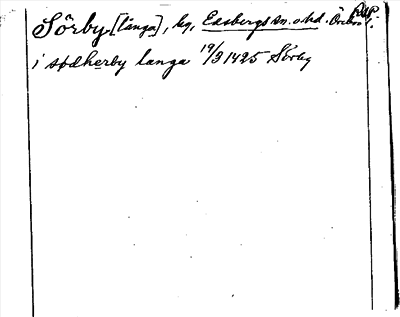 Sörby [långa], by, Edsbergs sn. o hd. Örebro
i sødherby langa 19/3 1425 Sörby